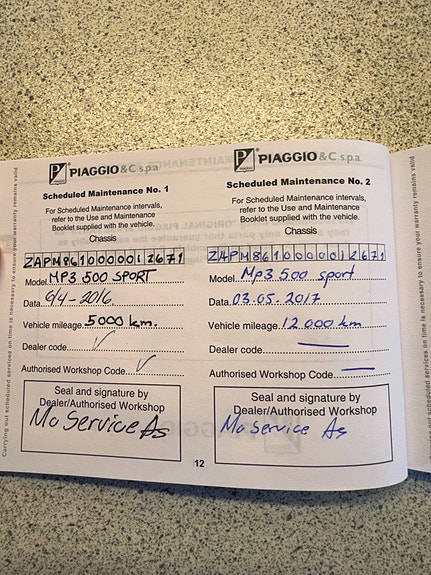 PIAGGIO & C. s.p.a.
Scheduled Maintenance No. 1
For Scheduled Maintenance intervals,
refer to the Use and Maintenance
Booklet supplied with the vehicle.
Chassis
ZAPM8610000012671
Model MP3 500 SPORT
Data 6/4-2016.
Vehicle mileage 5000 km.
Dealer code
Authorised Workshop Code
Seal and signature by
Dealer/Authorised Workshop
Mc Service As
PIAGGIO & C. s.p.a.
Scheduled Maintenance No. 2
For Scheduled Maintenance intervals,
refer to the Use and Maintenance
Booklet supplied with the vehicle.
Chassis
ZAPM8610000012671
Model Mp3 500 sport
Data 03.05.2017
Vehicle mileage 12 000 km
Dealer code
Authorised Workshop Code
Seal and signature by
Dealer/Authorised Workshop
Mc Service As
12
Carrying out scheduled services on time is necessary to ensure your warranty remains valid